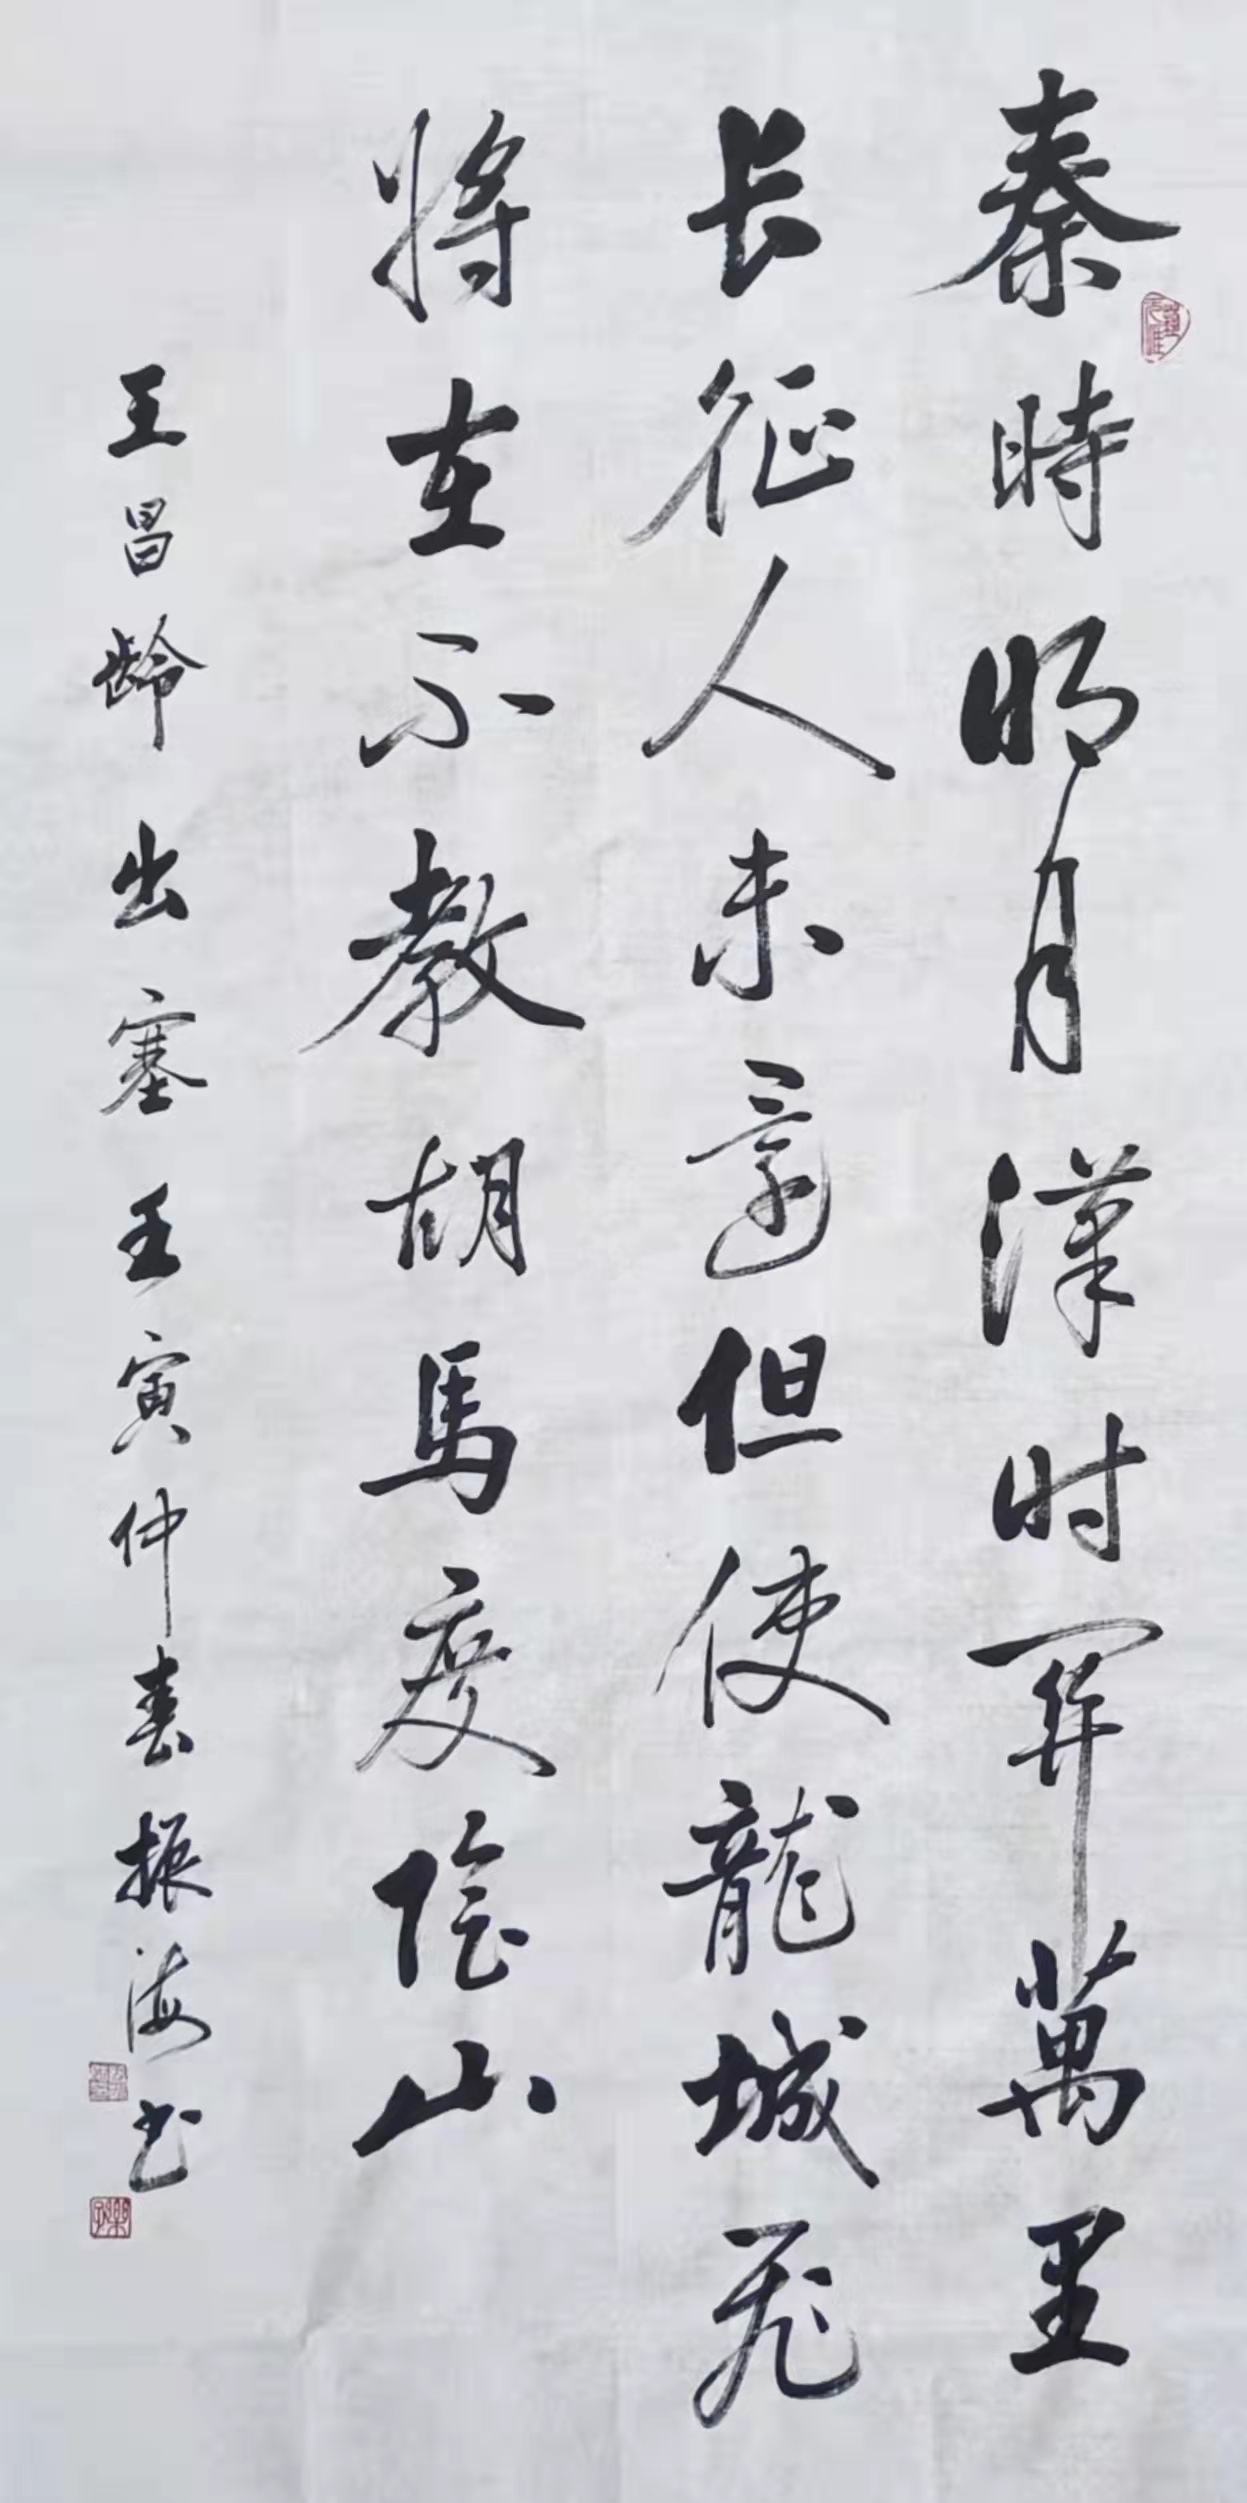 秦時明月漢时関萬里
长征人未還但使龍城飛
將在不教胡馬度陰山
王昌齡出塞壬寅仲春振海书